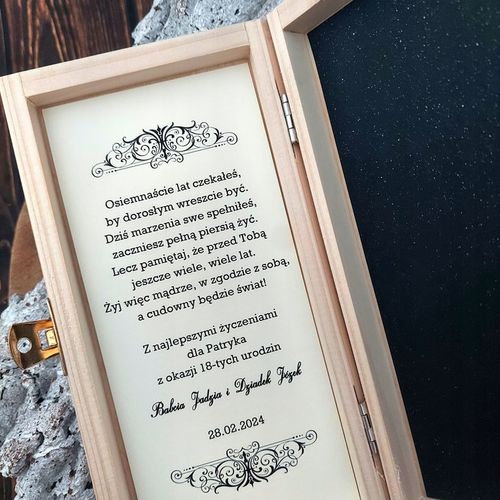 Osiemnaście lat czekałeś,
by dorosłym wreszcie być.
Dziś marzenia swe spełniłeś,
zaczniesz pełną piersią żyć.
Lecz pamiętaj, że przed Tobą
jeszcze wiele, wiele lat.
Żyj więc mądrze, w zgodzie z sobą,
a cudowny będzie świat!
Z najlepszymi życzeniami
dla Patryka
z okazji 18-tych urodzin
Babcia Jadzia i Dziadek Józek
28.02.2024